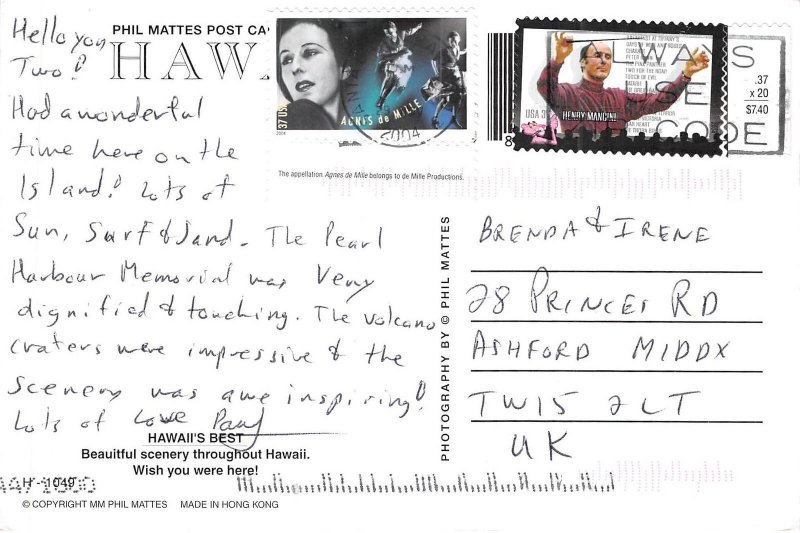 PHIL MATTES POST CA
HAWA
Hello you
Two!
Had a wonderful
time here on the
Island! Lots of
Sun, Surf & Sand. The Pearl
Harbour Memorial was Very
dignified & touching. The volcano
craters were impressive & the
scenery was awe inspiring!
Lots of Love Paul
HAWAII'S BEST
Beauitful scenery throughout Hawaii.
Wish you were here!
H - 1049
© COPYRIGHT MM PHIL MATTES MADE IN HONG KONG
PHOTOGRAPHY BY © PHIL MATTES
37 USA
AGNES de MILLE
2004
The appellation Agnes de Mille belongs to de Mille Productions.
USA 37
HENRY MANCINI
ALWAYS
USE
CODE
.37
x 20
$7.40
8
BRENDA & IRENE
28 PRINCES RD
ASHFORD MIDDX
TW15 2LT
UK